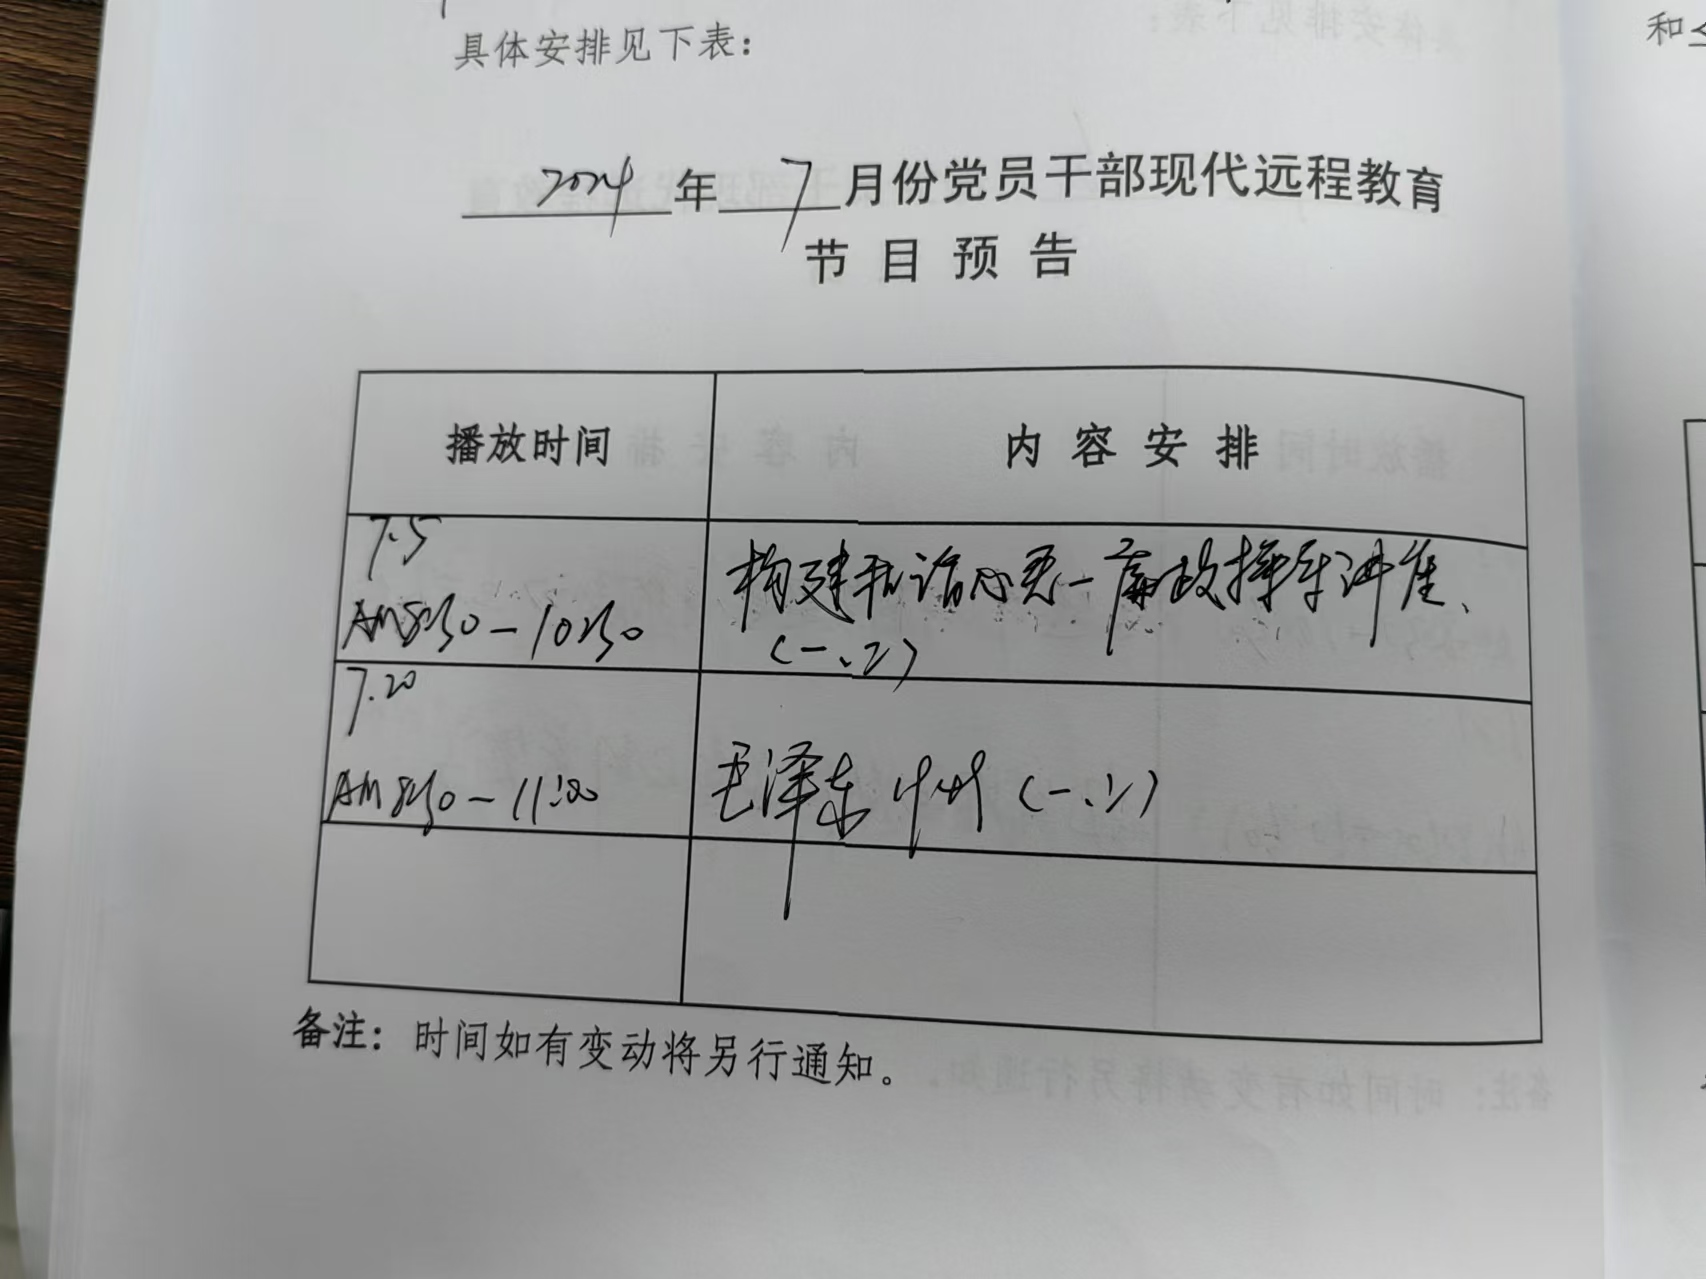 具体安排见下表：
和
2024年7月份党员干部现代远程教育
节目预告
播放时间 内容安排
7.5
AM8:30-10:30 构建和谐心灵-廉政
(一.二)
7.20
AM8:30-11:00 毛泽东 (一.二)
备注：时间如有变动将另行通知。